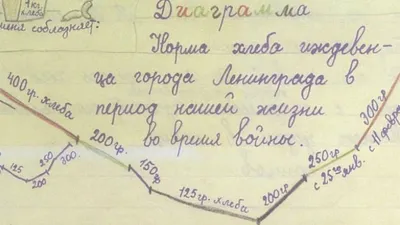 1 кг.
хлеба
соблозняет:
Диаграмма
Норма хлеба иждевен-
ца города Ленинграда в
период нашей жизни
во время войны.
400 гр. хлеба
200 гр.
150 гр
125 гр. хлеба
200 гр.
250 гр.
с 25го янв.
300 гр.
с 11 февра
125
200
250
300.